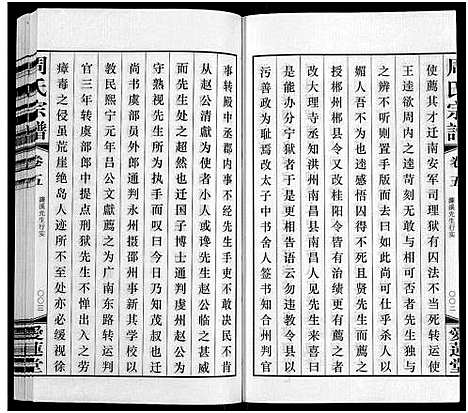 周氏宗譜
卷五
濂溪先生行实
〇〇二
愛蓮堂
使薦其才迁南安军司理有囚法不当死转运使
王逵欲周内之逵苛刻无敢与相可否者先生独与
之辨不听则置手版而归取告敕委之而去曰杀人以
媚人吾不为也逵亦感悟囚得不死且贤先生而薦之
授郴州郴县令又改桂阳令皆有治绩更有薦之者
改大理寺丞知洪州南昌县南昌人见先生来喜曰
是能辨分宁狱者于是更相告语云勿违教令县以
污善政为耻焉改太子中书舍人签书知合州判官
事转殿中丞郡内事不经先生手吏不敢决民不肯
从赵公清献为使者小人或谗先生赵公临之甚威
而先生处之超然也迁国子博士通判虔州赵公来
守熟视先生所为执其手而叹曰今日乃知茂叔也迁
尚书虞部员外郎通判永州摄邵州事新其学校以
教民熙宁元年吕公文献薦之为广南东路转运判
官三年转虞部郎中提点刑狱先生不惮出入之劳
瘴毒之侵虽荒崖绝岛人迹所不至处亦必缓视徐
周氏宗譜
卷五
濂溪先生行实
〇〇三
愛蓮堂